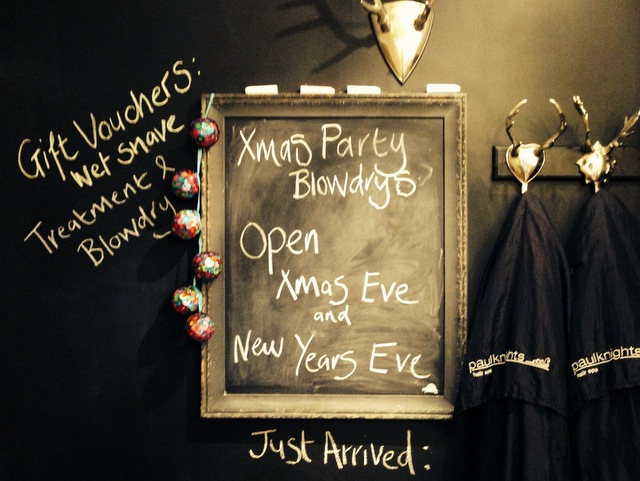 Gift Vouchers:
Wet Shave
Treatment &
Blowdry
Xmas Party
Blowdrys
Open
Xmas Eve
and
New Years Eve
Just Arrived:
paulknights
hair spa
paulknights
hair spa